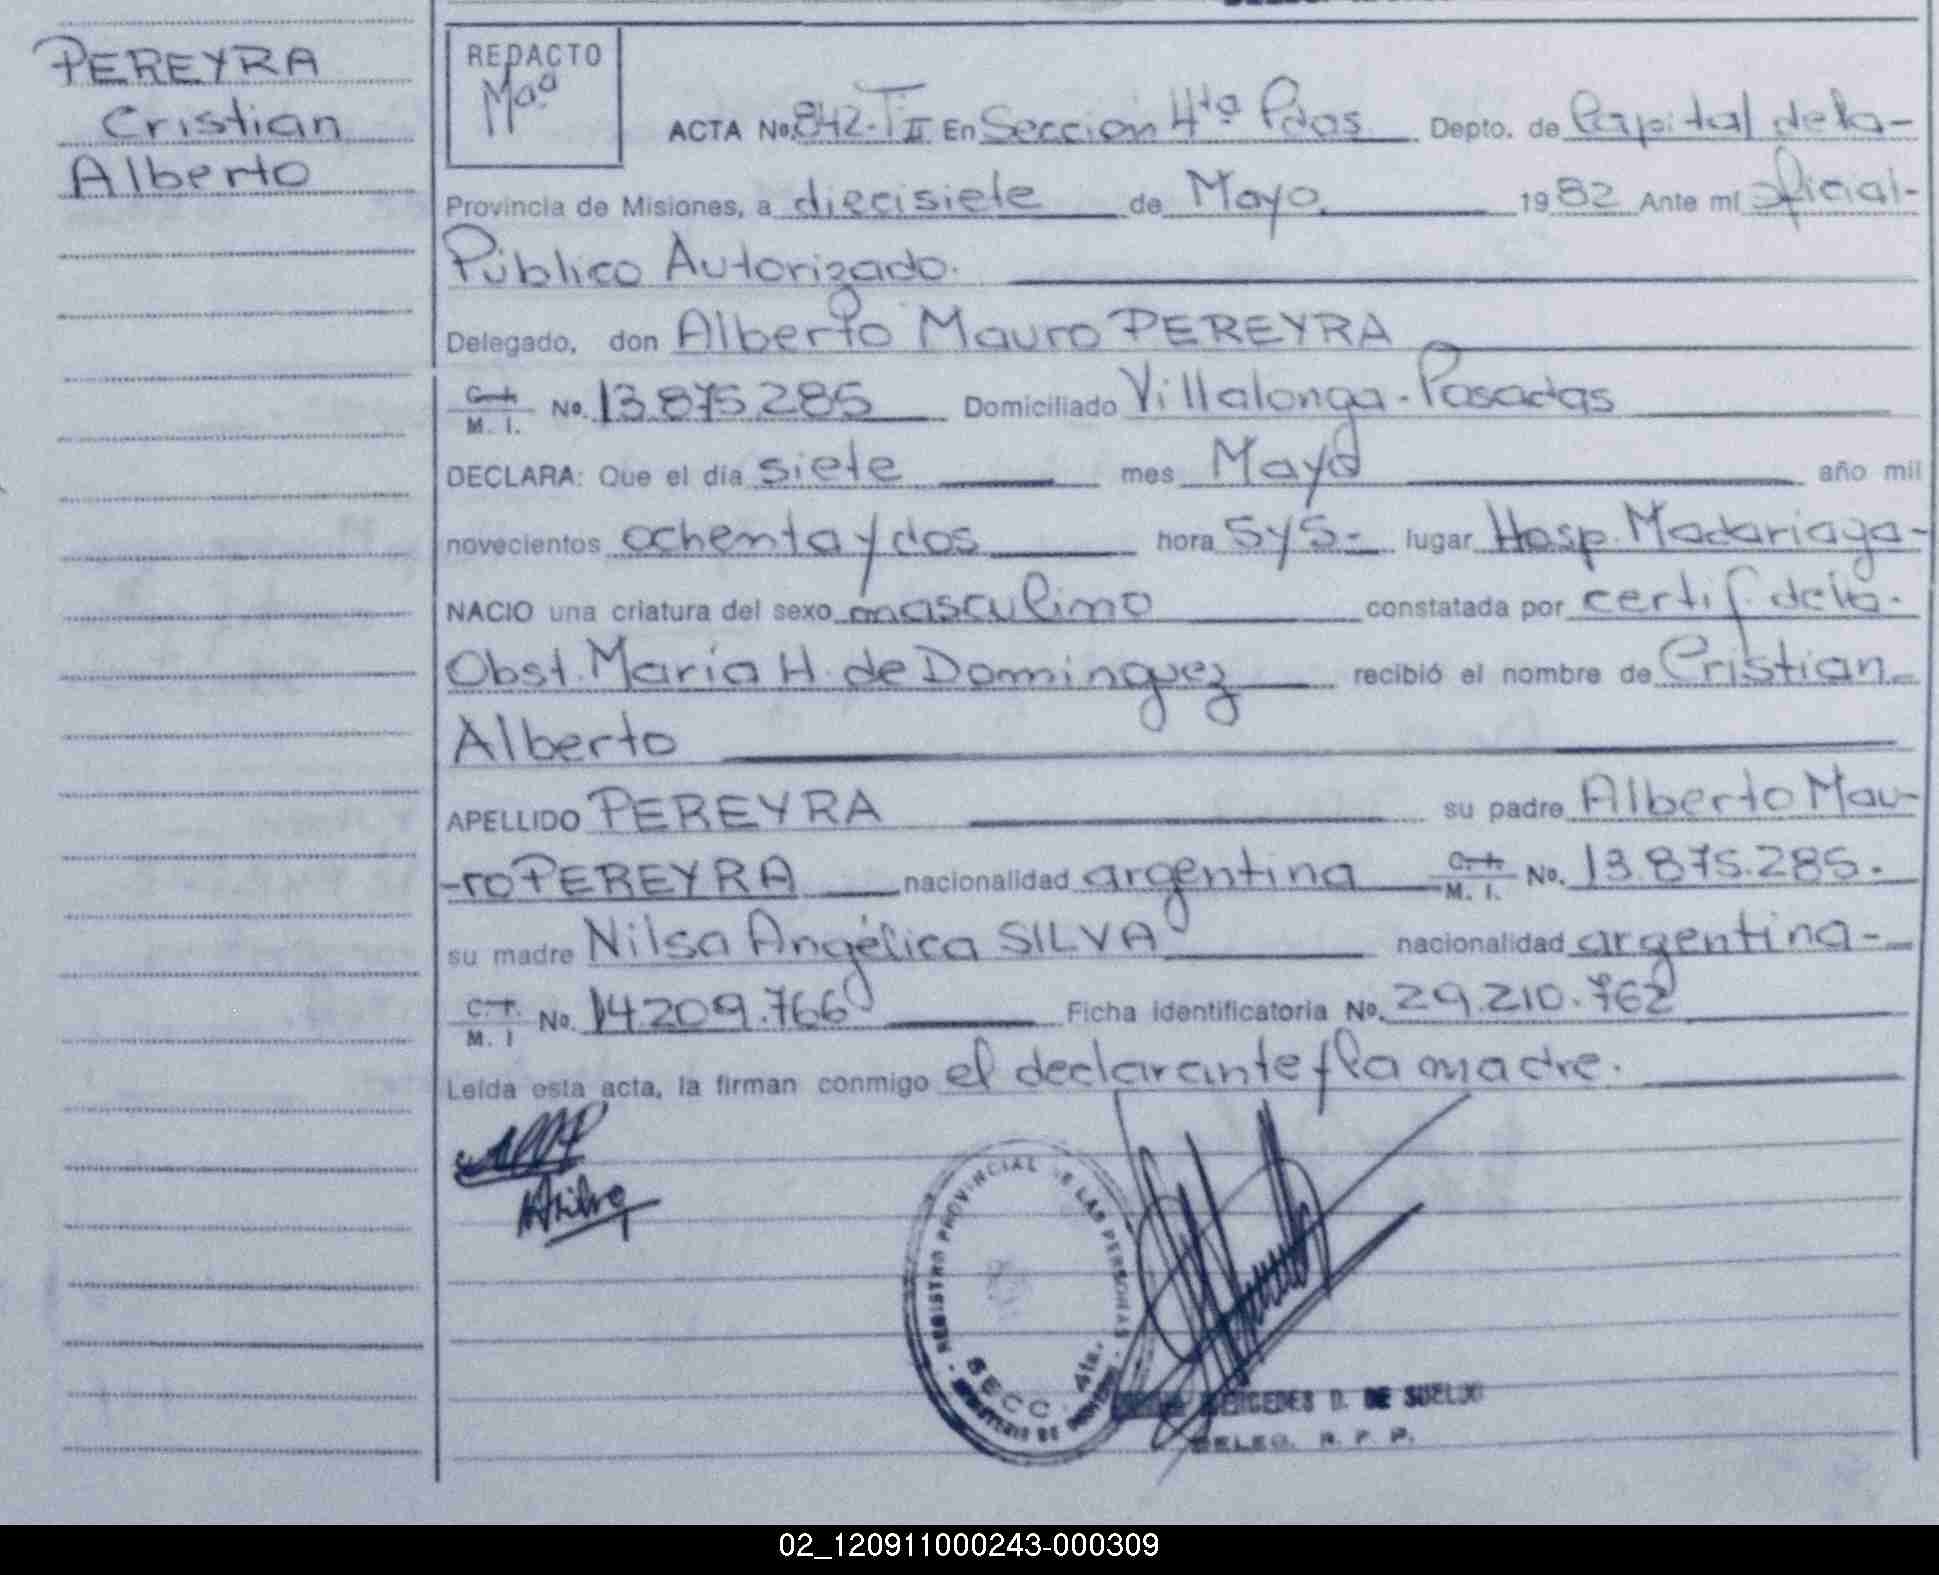 PEREYRA
Cristian
Alberto
REDACTO
Maª
ACTA No. 842-T II En Sección 4ta Pdas Depto. de Capital de la-
Provincia de Misiones, a diecisiete de Mayo 1982 Ante mí oficial-
Público Autorizado.
Delegado, don Alberto Mauro PEREYRA
C. I.
M. I. No. 13.875.285 Domiciliado Villalonga-Posadas
DECLARA: Que el día siete mes Mayo año mil
novecientos ochenta y dos hora 5 y 5- lugar Hosp. Madariaga-
NACIO una criatura del sexo masculino constatada por certif. de la-
Obst. María H. de Dominguez recibió el nombre de Cristian
Alberto
APELLIDO PEREYRA su padre Alberto Mau-
-ro PEREYRA nacionalidad argentina C. I. M. I. No. 13.875.285.
su madre Nilsa Angélica SILVA nacionalidad argentina-
C. I.
M. I No. 14.209.766 Ficha identificatoria No. 29.210.762
Leída esta acta, la firman conmigo el declarante y la madre.
NASilva
REGISTRO PROVINCIAL DE LAS PERSONAS
SECC. 4ta.
MINISTERIO DE
MERCEDES D. DE SUELDO
DELEG. R. P. P.
02_120911000243-000309